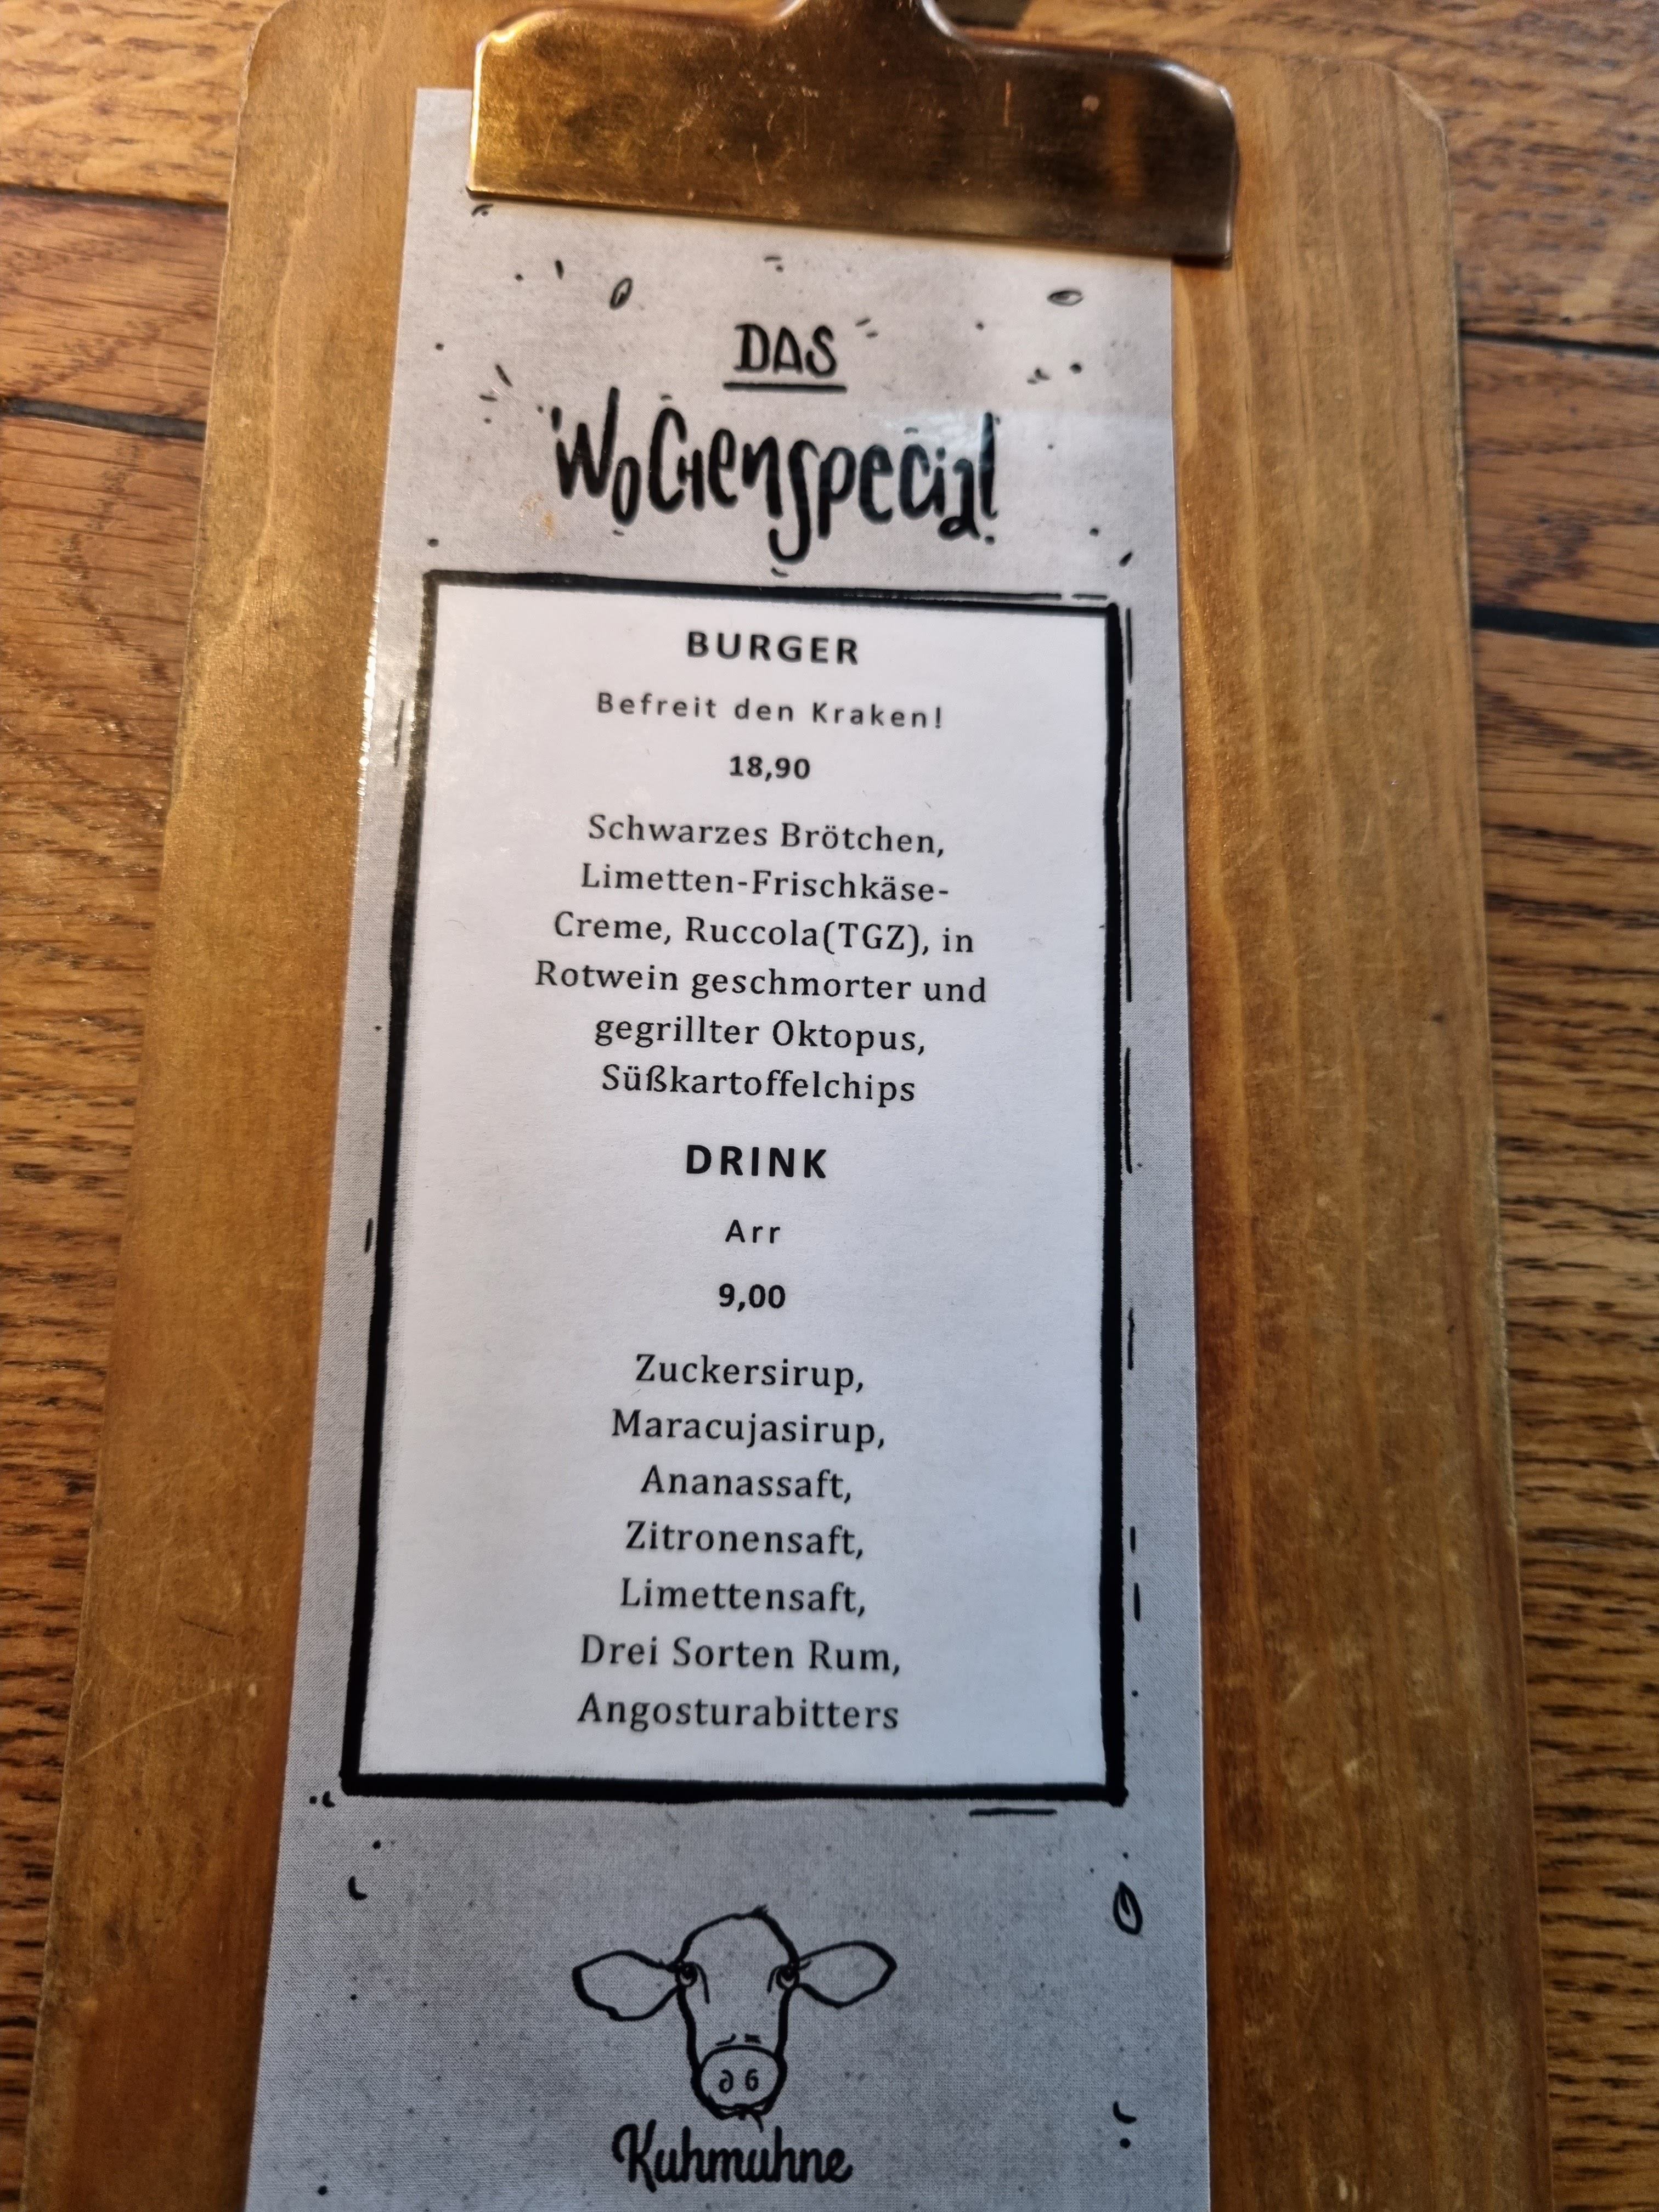 DAS
WOCHENSPECIAL
BURGER
Befreit den Kraken!
18,90
Schwarzes Brötchen,
Limetten-Frischkäse-
Creme, Ruccola(TGZ), in
Rotwein geschmorter und
gegrillter Oktopus,
Süßkartoffelchips
DRINK
Arr
9,00
Zuckersirup,
Maracujasirup,
Ananassaft,
Zitronensaft,
Limettensaft,
Drei Sorten Rum,
Angosturabitters
Kuhmuhne